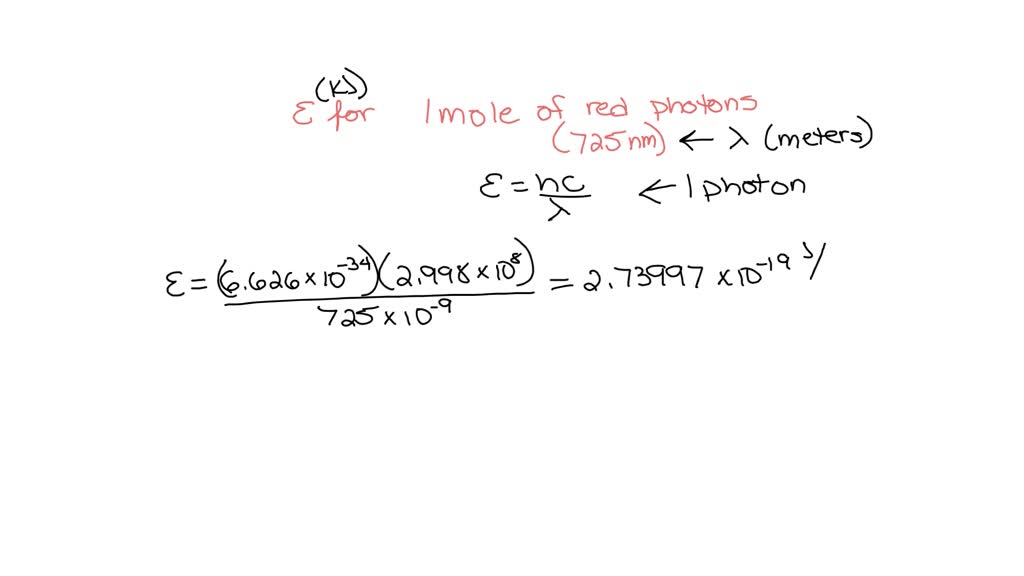 (KJ)
E for 1 mole of red photons
(725 nm) ← λ (meters)
E = hc/λ ← 1 photon
E = (6.626 × 10⁻³⁴)(2.998 × 10⁸)/725 × 10⁻⁹ = 2.73997 × 10⁻¹⁹ J/